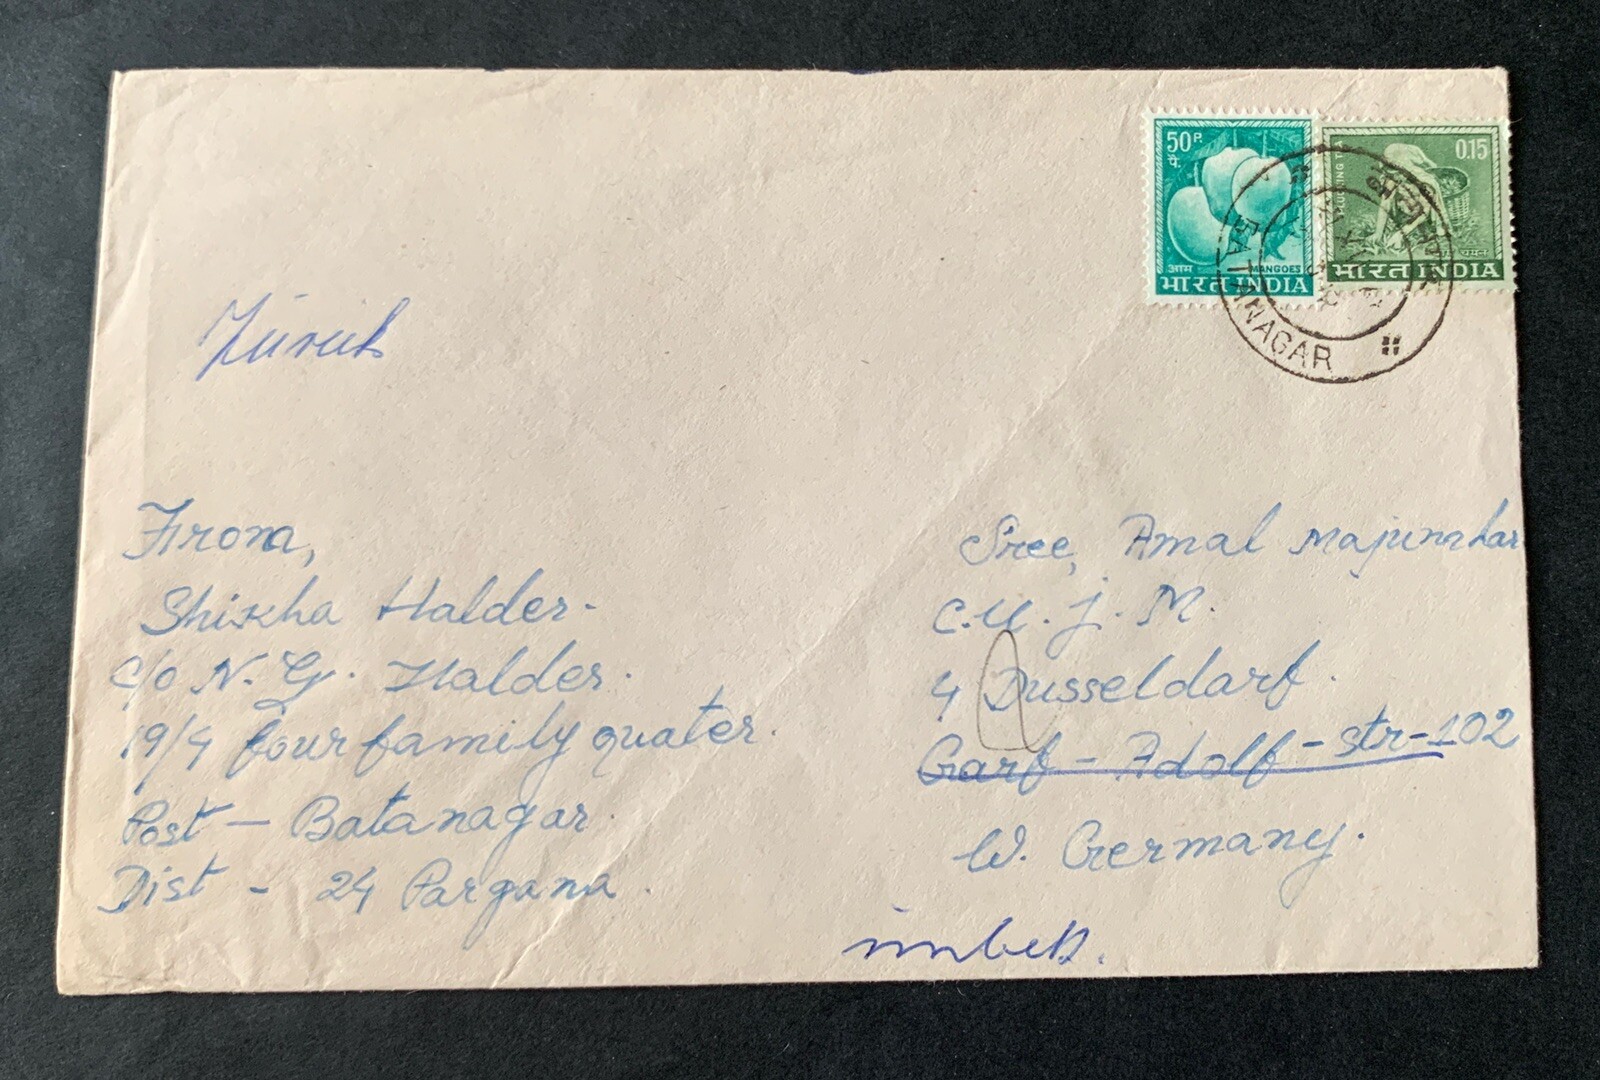 50 P.
पै.
आम MANGOES
भारत INDIA
0.15
भारत INDIA
NAGAR
Zurück
From,
Shikha Halder.
C/o N. G. Halder.
19/4 four family quater.
Post - Batanagar.
Dist - 24 Pargana.
Sree, Amal Majumdar
C.U. J. M.
4 Dusseldarf.
Garf - Adolf - str-102
W. Germany.
unbek.